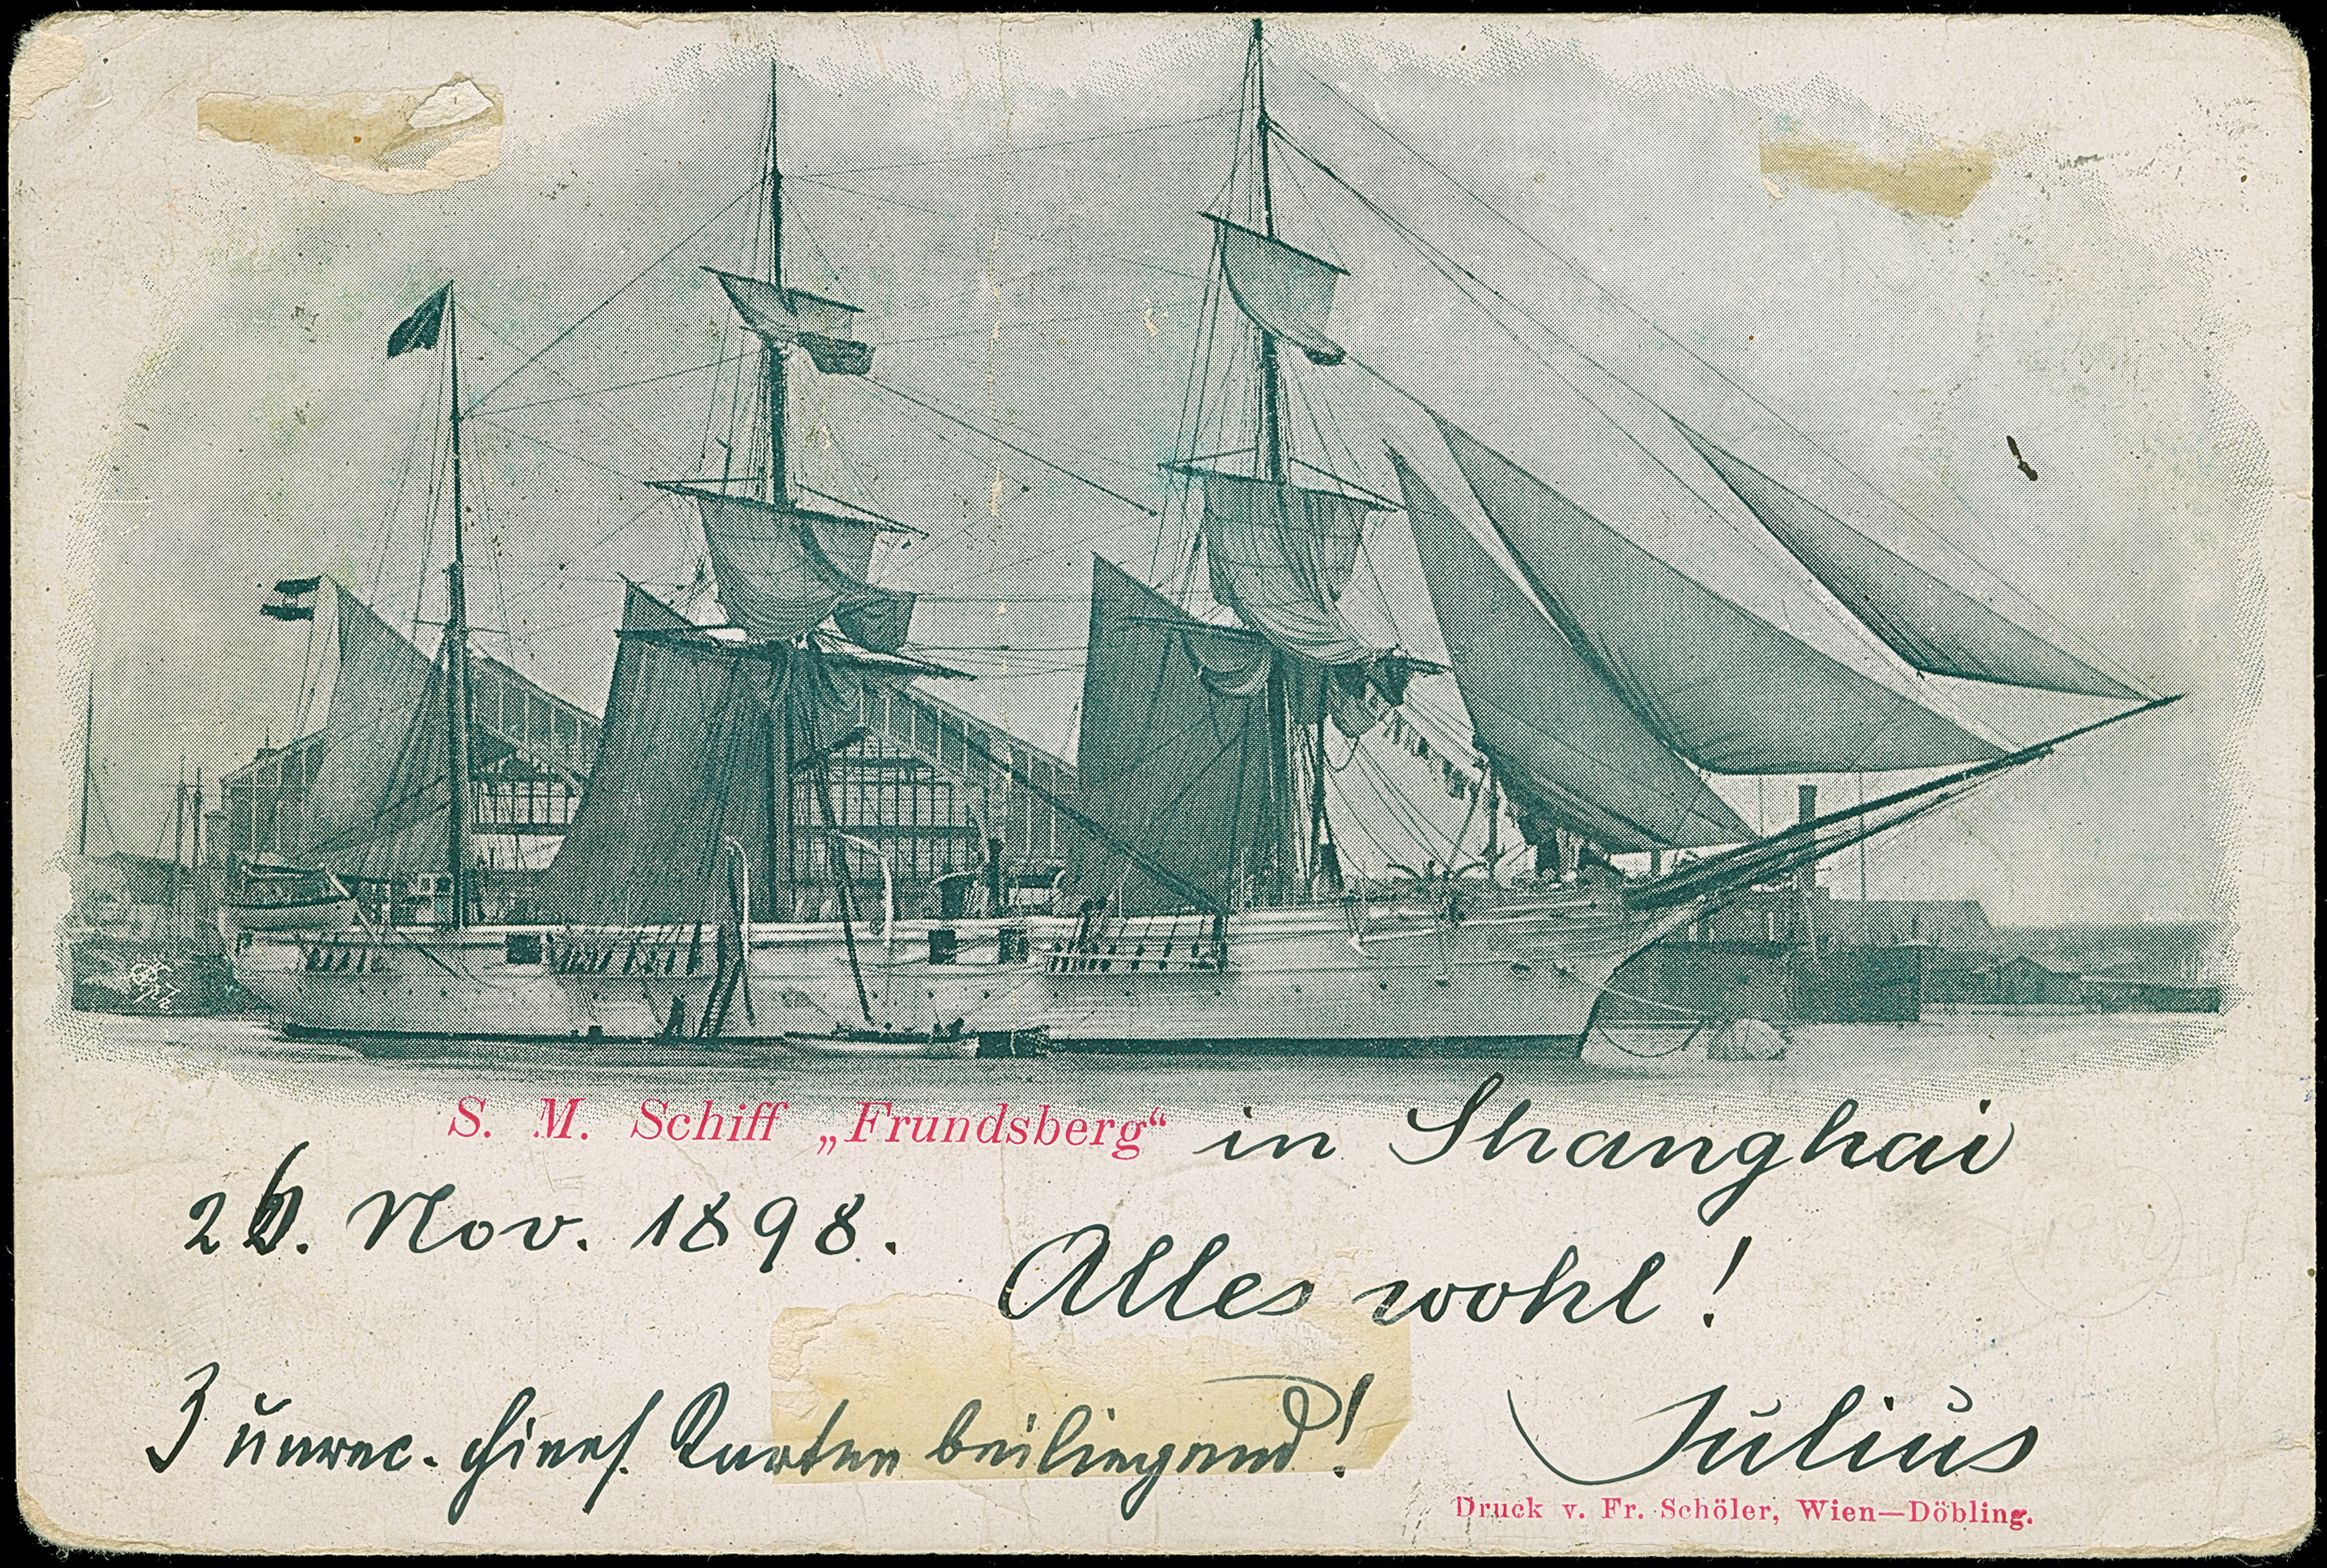 S. M. Schiff „Frundsberg“ in Shanghai
26. Nov. 1898.
Alles wohl!
3 chines. Karten beiliegend!
Julius
Druck v. Fr. Schöler, Wien—Döbling.